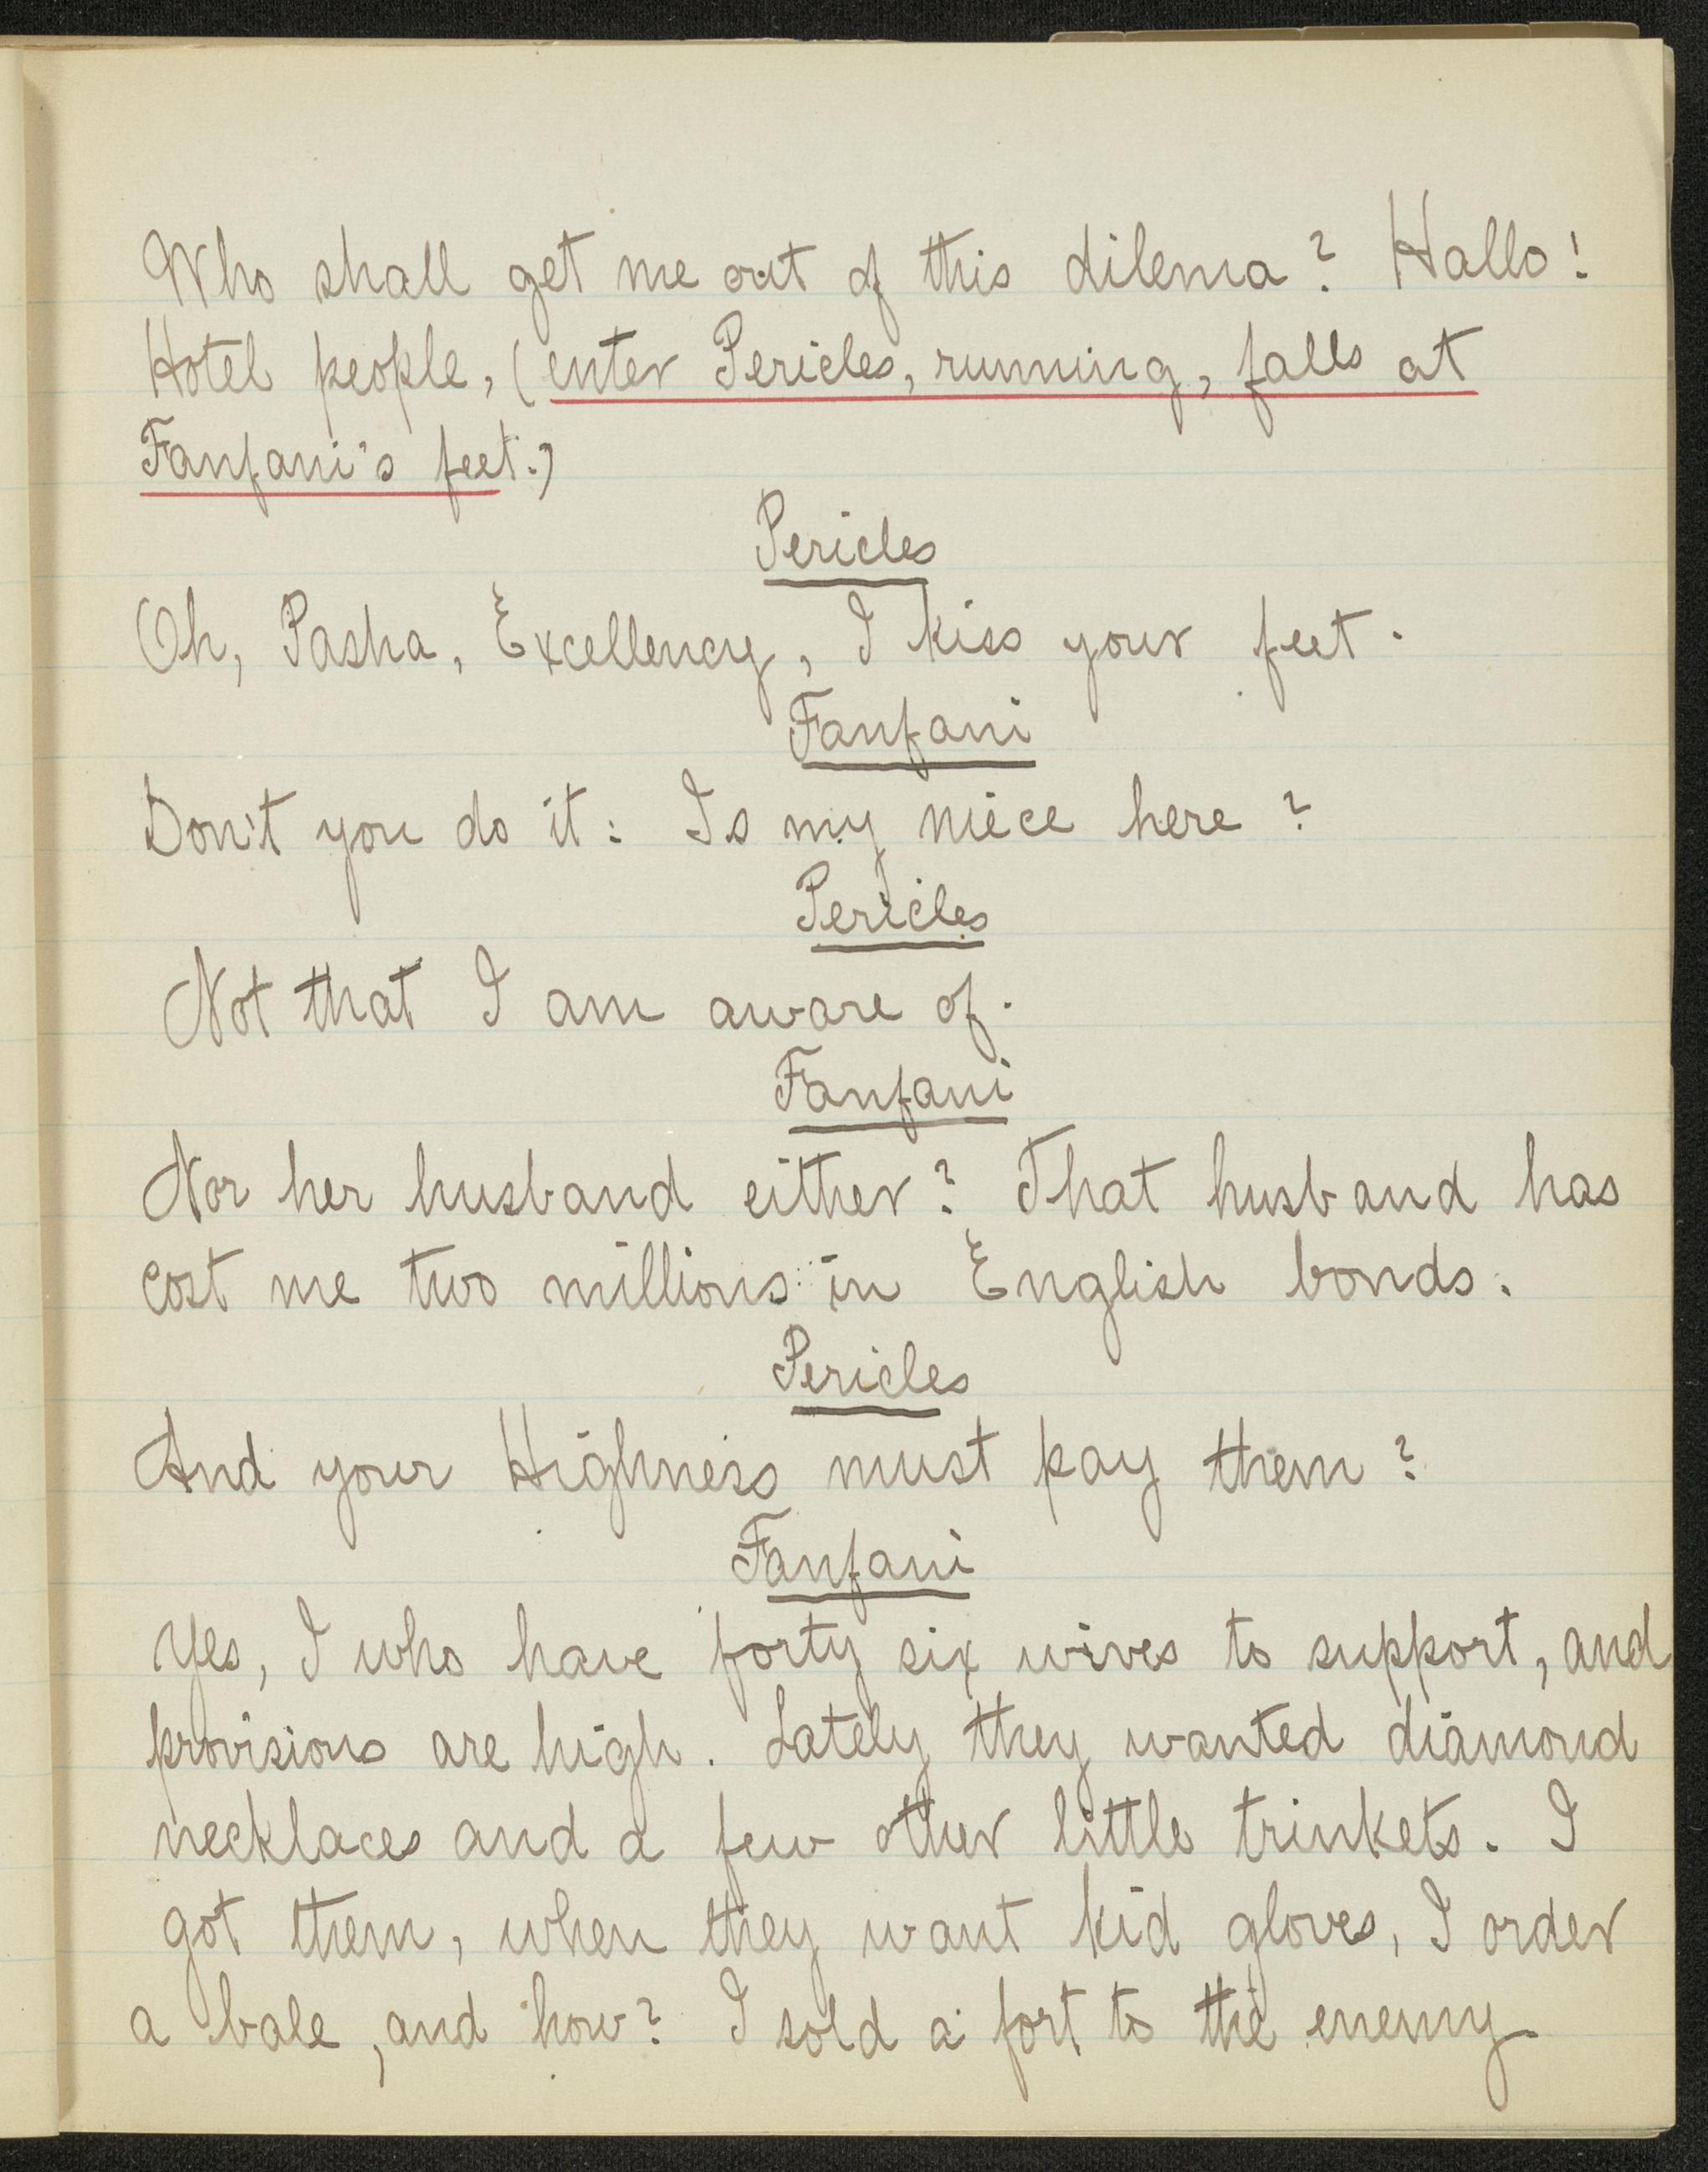 Who shall get me out of this dilema? Hallo!
Hotel people, (enter Pericles, running, falls at
Fanfani's feet.)
Pericles
Oh, Pasha, Excellency, I kiss your feet.
Fanfani
Don't you do it: Is my niece here?
Pericles
Not that I am aware of.
Fanfani
Nor her husband either? That husband has
cost me two millions in English bonds.
Pericles
And your Highness must pay them?
Fanfani
Yes, I who have forty six wives to support, and
provisions are high. Lately they wanted diamond
necklaces and a few other little trinkets. I
got them, when they want kid gloves, I order
a bale, and how? I sold a fort to the enemy